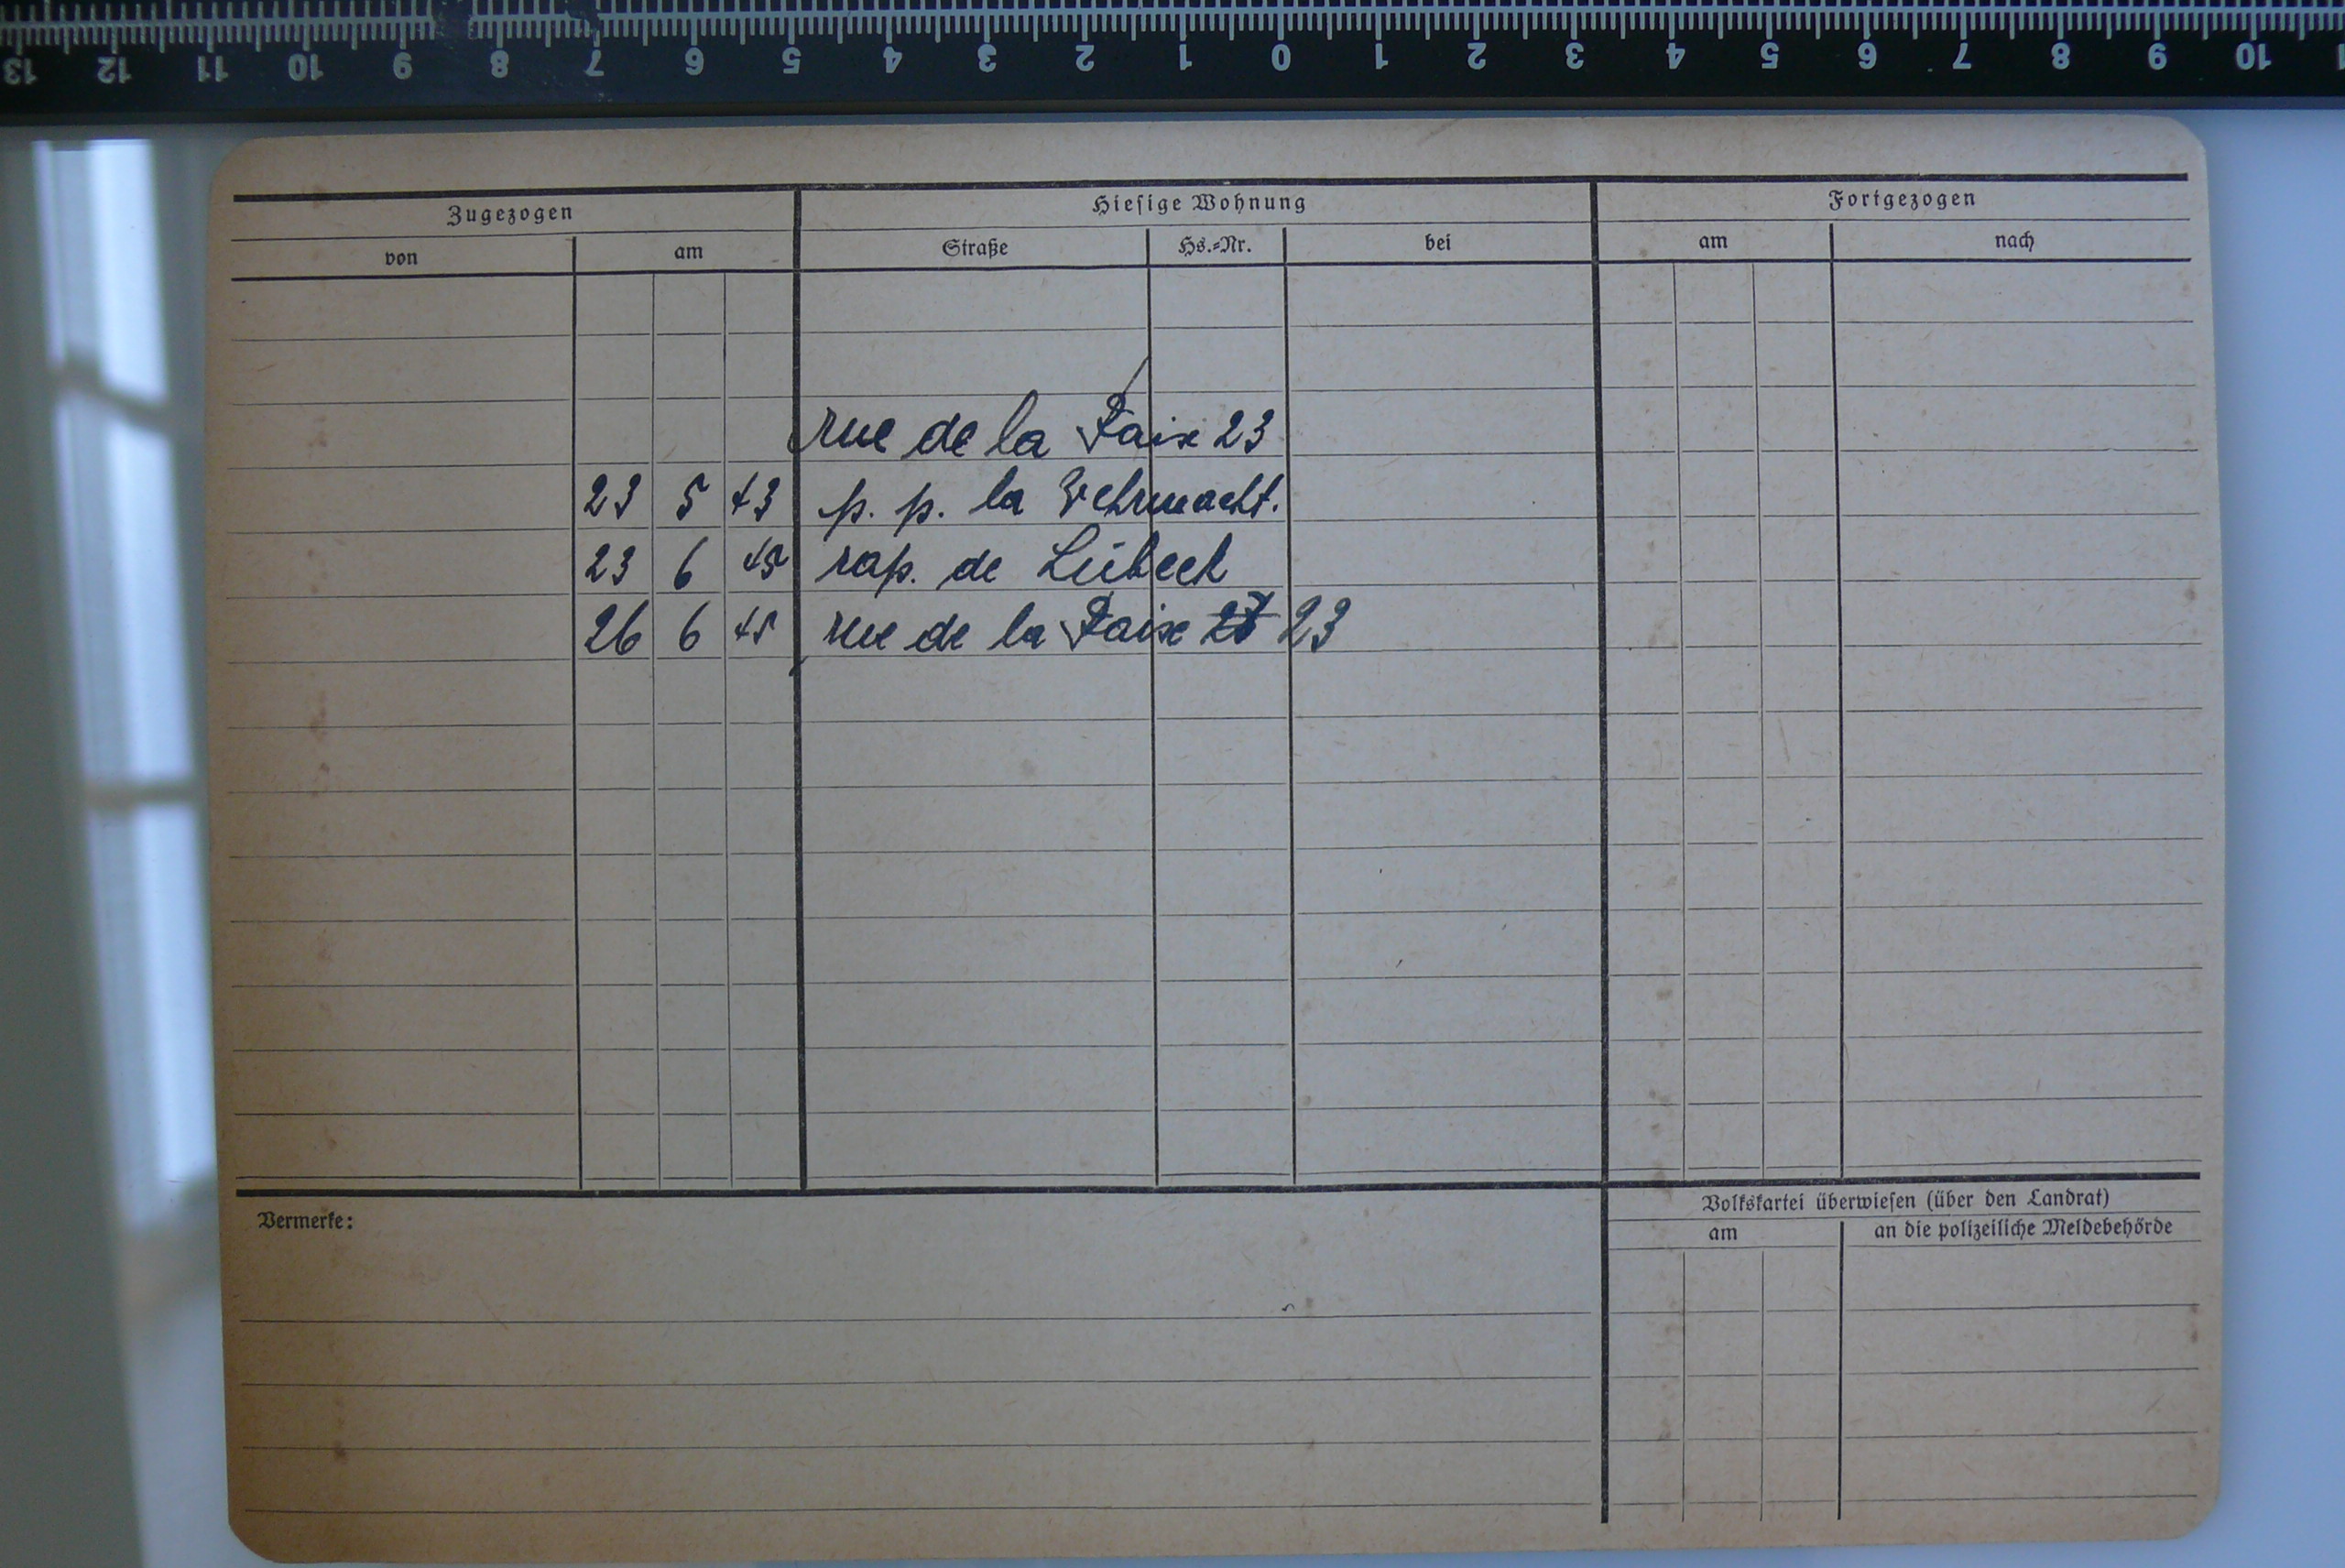 13 12 11 10 9 8 7 6 5 4 3 2 1 0 1 2 3 4 5 6 7 8 9 10
Zugezogen Hiesige Wohnung Fortgezogen
von am Straße Hs.-Nr. bei am nach
rue de la Paix 23
23 5 43 p. p. la Wehrmacht.
23 6 45 rap. de Lübeck
26 6 45 rue de la Paix 23
Vermerke:
Volkskartei überwiesen (über den Landrat)
am an die polizeiliche Meldebehörde